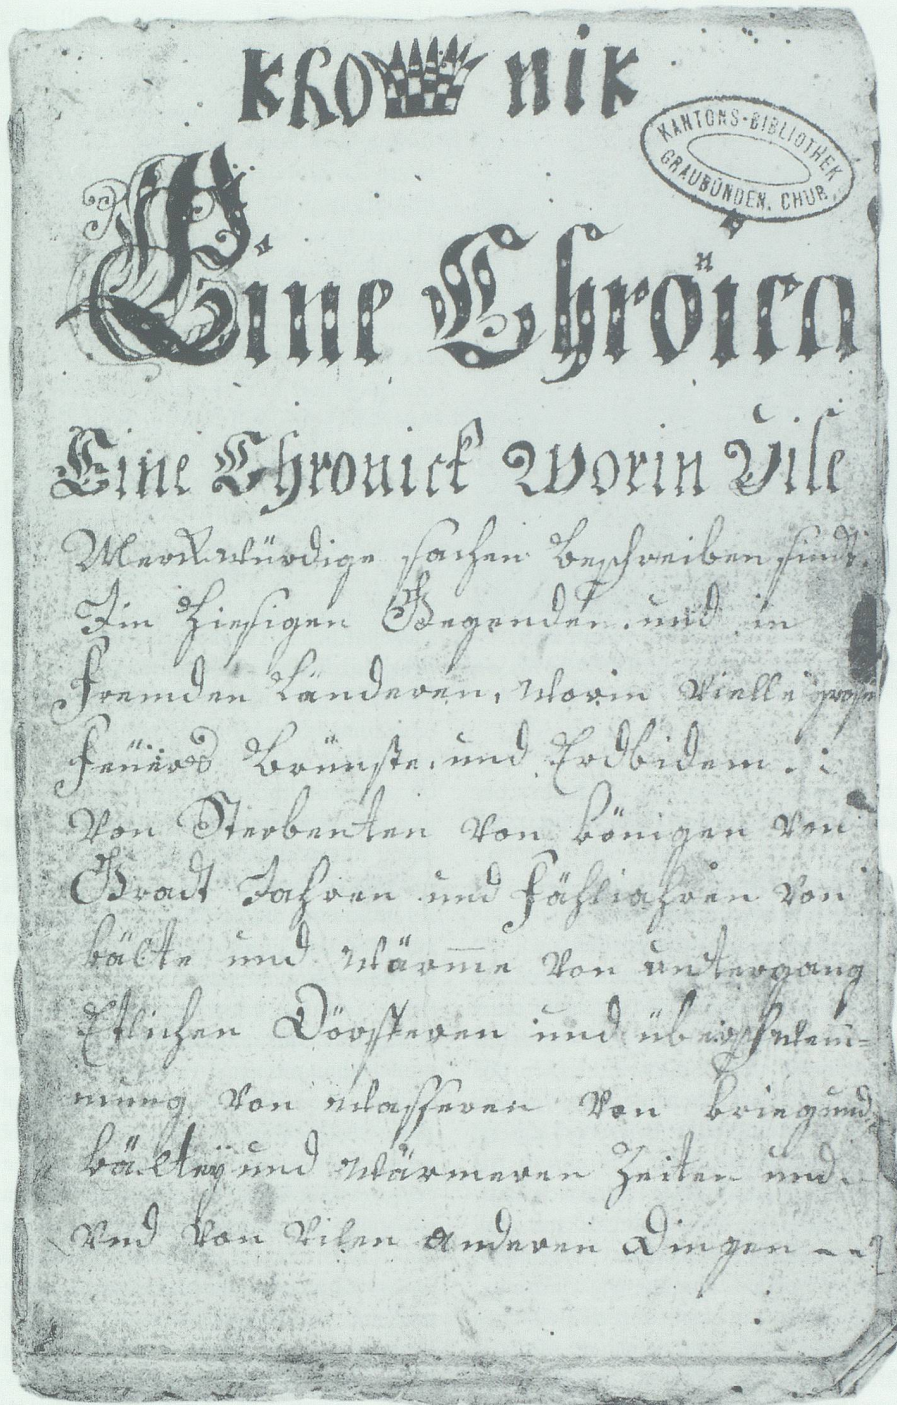 khronik
KANTONS-BIBLIOTHEK
GRAUBÜNDEN. CHUR.
Eine Chroica
Eine Chronick Worin Vile
Merkwürdige sachen beschreiben sindt.
Im hiesigen Gegenden. und in
Fremden Länderen, Worin Vielle grose
Feüers Brünste. und Erdbidem . :
Von Sterbenten Von königen Von
Gradt Jahren und Fähljahren Von
kälte und Wärm̅e Von untergang
Etlichen Dörfferen und überschwem=
mung Von Wasseren Von krieg und
kälteÿ und Wärmeren Zeiten und.
Vnd Von Vilen anderen Dingen